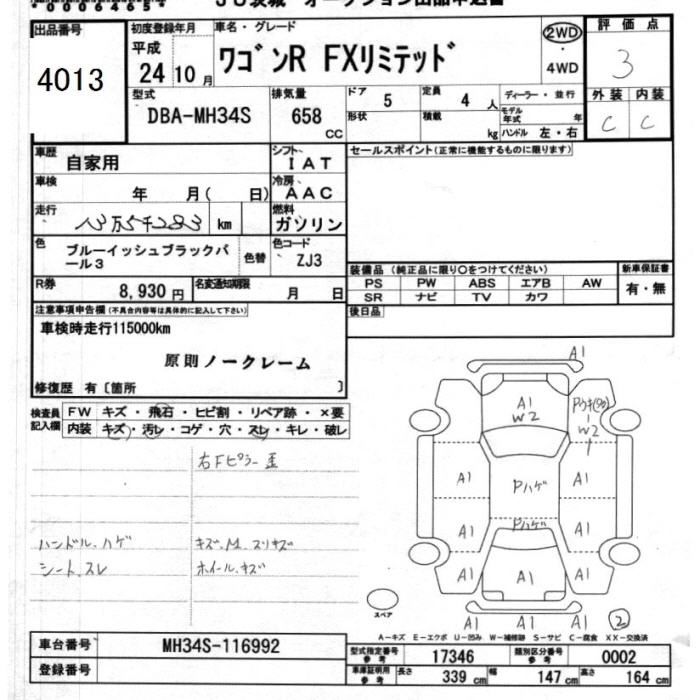 *00004654*
JU茨城 オークション出品申込書
出品番号
4013
初度登録年月
平成
24 10 月
車名・グレード
ワゴンR FXリミテッド
2WD
4WD
評価点
3
外装 内装
C C
型式
DBA-MH34S
排気量
658
CC
ドア
5
定員
4 人
形状
積載
kg
ディーラー・並行
モデル年式
年
ハンドル 左・右
車歴
自家用
シフト
IAT
セールスポイント(正常に機能するものに限ります)
車検
年 月( 日)
冷房
AAC
走行
13万5千283 km
燃料
ガソリン
色
ブルーイッシュブラックパール3
色替
色コード
ZJ3
R券
8,930 円
名変通知期限
月 日
装備品(純正品に限り○をつけてください)
PS PW ABS エアB AW
SR ナビ TV カワ
新車保証書
有・無
後日品
注意事項申告欄(不具合内容等は具体的に記入して下さい)
車検時走行115000km
原則ノークレーム
修復歴 有〔箇所 〕
検査員記入欄
FW キズ・飛石・ヒビ割・リペア跡・×要
内装 キズ・汚レ・コゲ・穴・スレ・キレ・破レ
右Fピラー歪
ハンドル、ハゲ
シート、スレ
キズ、M、スリキズ
ホイール、キズ
A1
A1
W2
W2
A1
A1
Pハゲ
Pハゲ
A1
A1
A1
A1
A1
A1
A1
2
スペア
A-キズ E-エクボ U-凹み W-補修跡 S-サビ C-腐食 XX-交換済
車台番号
MH34S-116992
登録番号
型式指定番号
参考
17346
類別区分番号
参考
0002
車庫証明用
参考
長さ
339 cm
幅
147 cm
高さ
164 cm